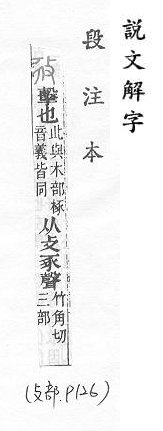 說文解字
段注本
擊也此與木部椓音義皆同从攴豖聲竹角切三部
(攴部.P126)